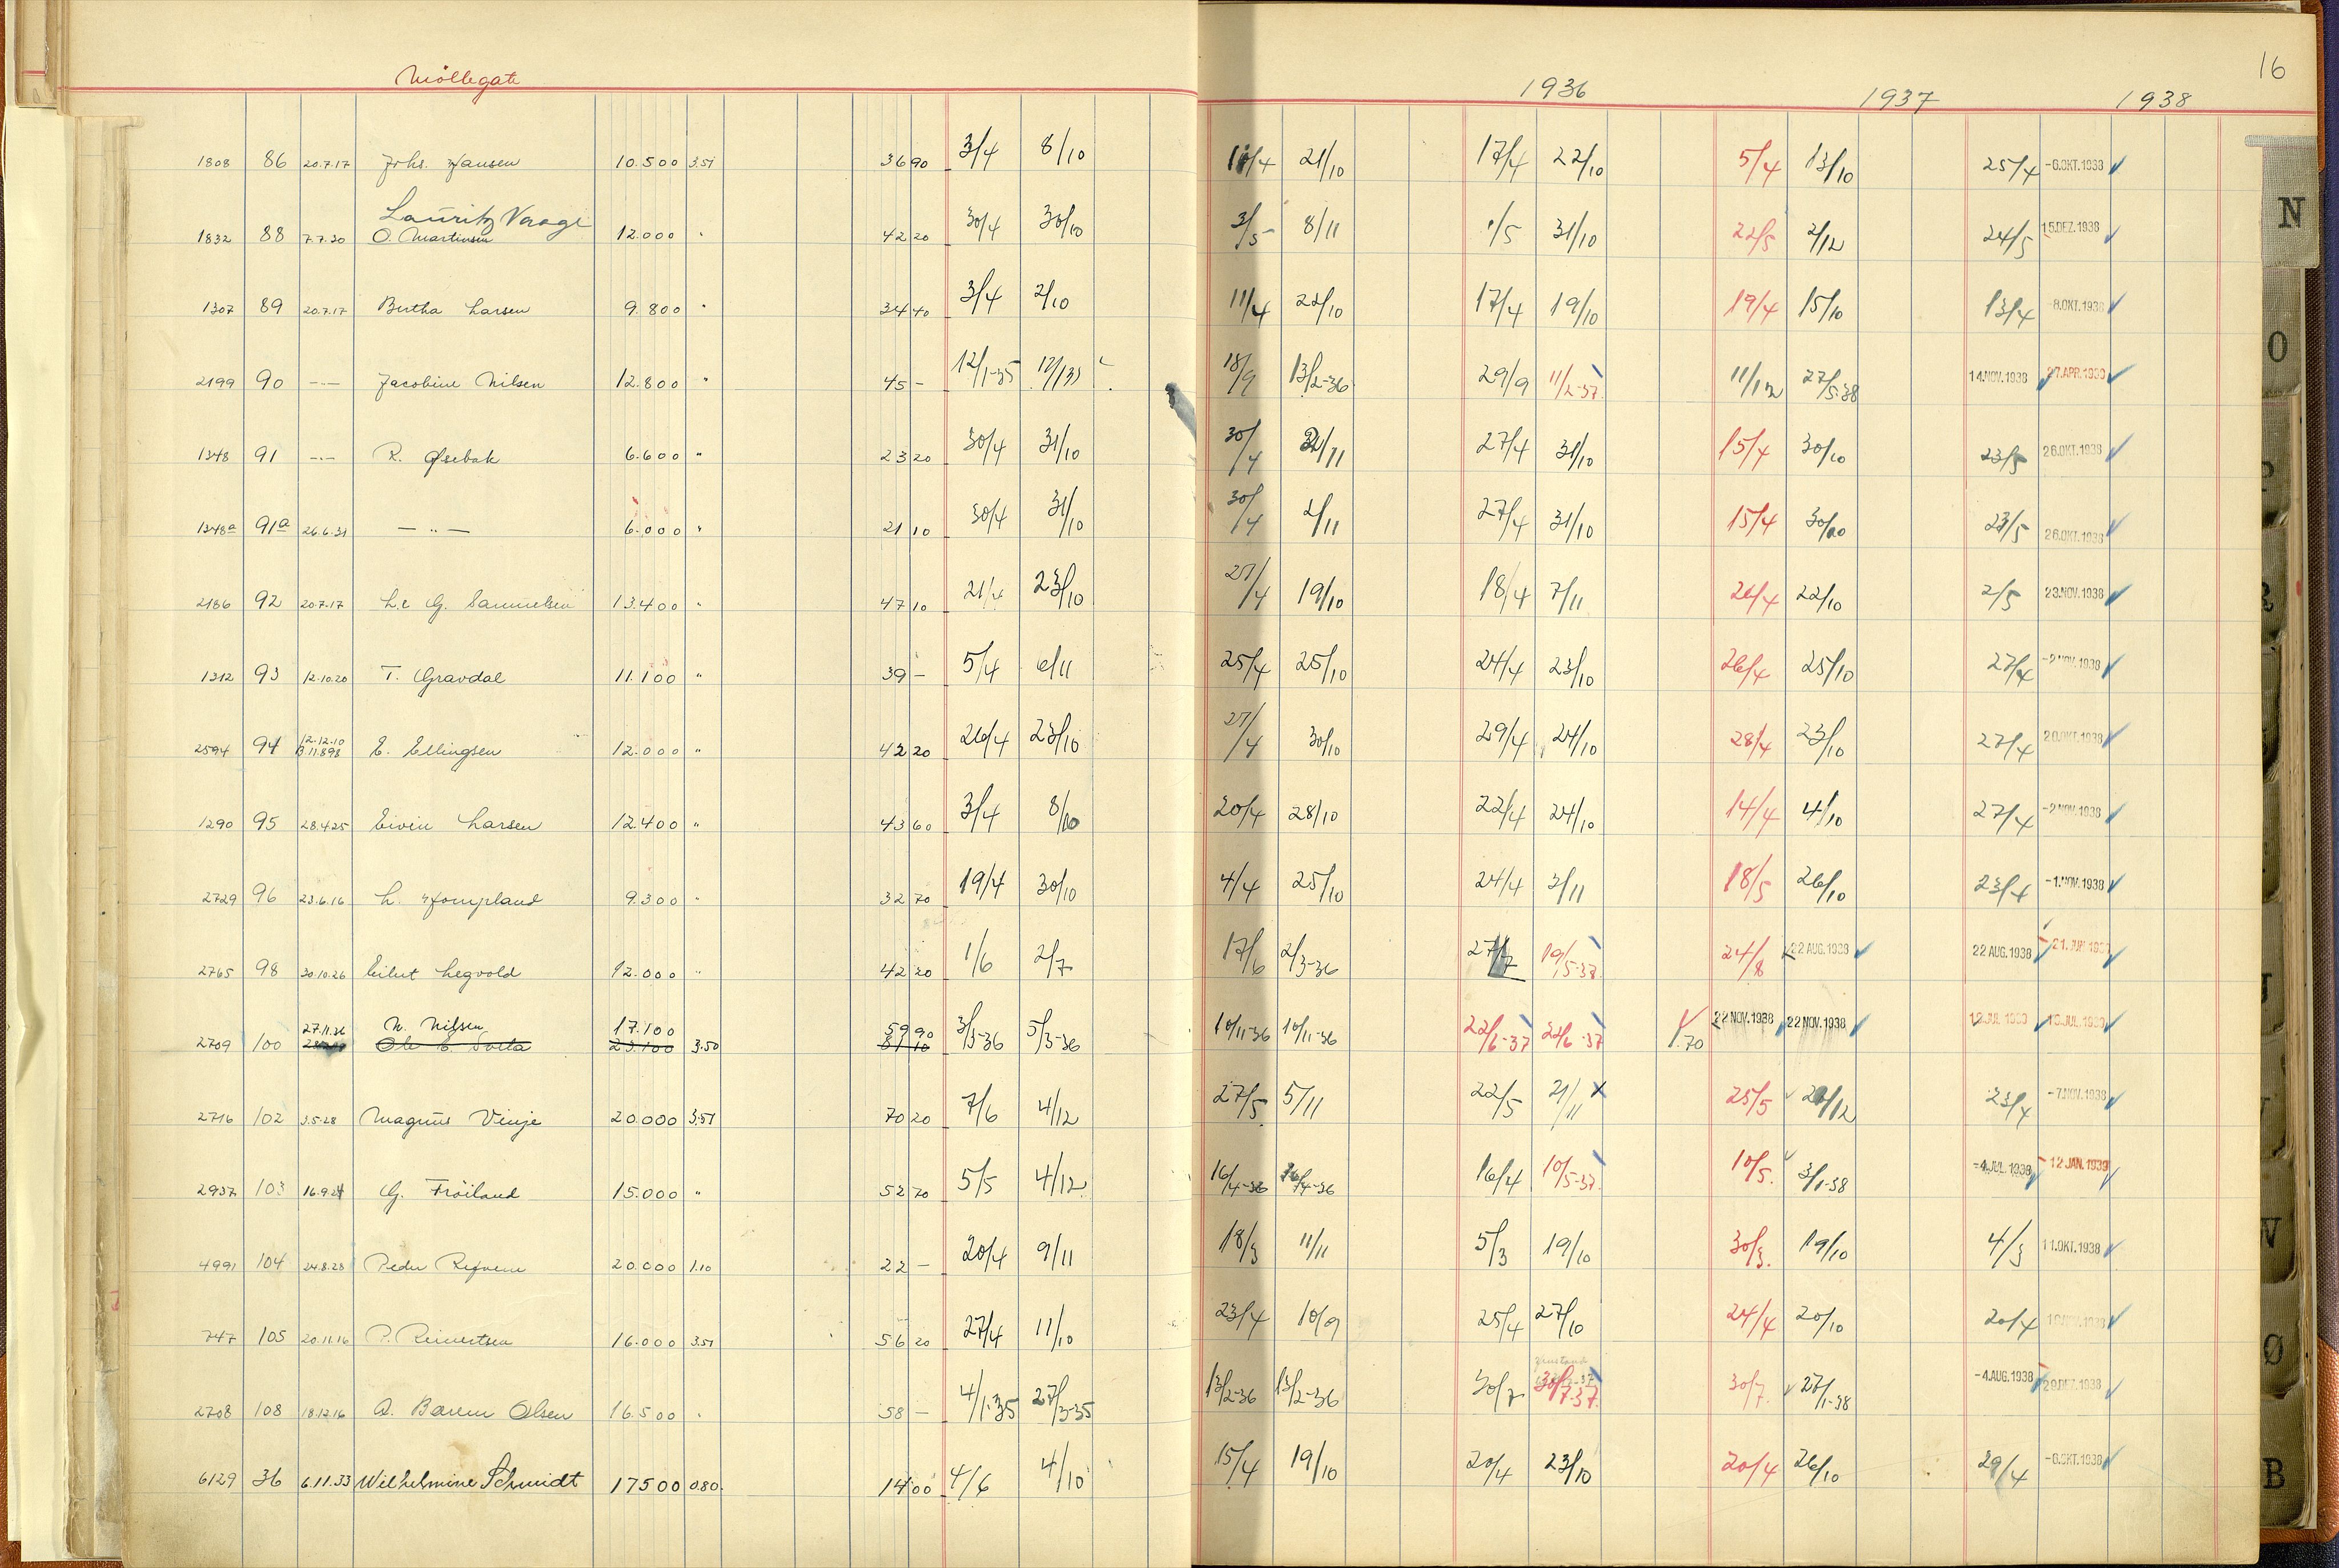 16
Möllegate 1936 1937 1938
1808 86 20.7.17 Johs. Hansen 10.500 3.51 36 90 3/4 8/10 /4 21/10 17/4 22/10 5/4 13/10 25/4 -6.OKT.1938
Lauritz Vaage
1832 88 7.7.30 O. Martinsen 12.000 " 42 20 30/4 30/10 3/5 8/11 1/5 31/10 22/5 2/12 24/5 15.DEZ.1938
1307 89 20.7.17 Bertha Larsen 9.800 " 34 40 3/4 2/10 11/4 22/10 17/4 19/10 19/4 15/10 13/4 -8.OKT.1938
2199 90 -"- Jacobine Nilsen 12.800 " 45 - 12/1-35 18/9 13/2-36 29/9 11/2-37 11/12 27/5-38 14.NOV.1938 27.APR.1939
1348 91 -"- R. Øsebak 6.600 " 23 20 30/4 31/10 30/4 /11 27/4 31/10 15/4 30/10 23/5 26.OKT.1938
1348a 91a 26.6.31 - " - 6.000 " 21 10 30/4 31/10 30/4 2/11 27/4 31/10 15/4 30/10 23/5 26.OKT.1938
2186 92 20.7.17 L. G. Samuelsen 13.400 " 47 10 21/4 23/10 27/4 19/10 18/4 7/11 26/4 22/10 2/5 23.NOV.1938
1312 93 12.10.20 T. Gravdal 11.100 " 39 - 5/4 6/11 25/4 25/10 24/4 23/10 26/4 25/10 27/4 -2.NOV.1938
12.12.10
2594 94 13.11.898 E. Ellingsen 12.000 " 42 20 26/4 23/10 27/4 30/10 29/4 24/10 28/4 23/10 27/4 20.OKT.1938
1290 95 28.4.25 Eivin Larsen 12.400 " 43 60 3/4 8/10 20/4 28/10 22/4 24/10 14/4 4/10 27/4 -2.NOV.1938
2729 96 23.6.16 L. Hompland 9.300 " 32 70 19/4 30/10 4/4 25/10 24/4 3/11 18/5 26/10 23/4 -1.NOV.1938
2765 98 30.10.26 Eilert Legvold 12.000 " 42 20 1/6 2/7 17/6 2/3-36 27/7 19/5-37 24/8 22 AUG.1938 22 AUG.1938
27.11.36 N. Nilsen 17.100 59 90
2709 100 Ole E. 23.100 3.50 81 10 3/3-36 5/3-36 10/11-36 10/11-36 22/6-37 22/6-37 22 NOV.1938 22 NOV.1938
2716 102 3.5.28 Magnus Vinje 20.000 3.51 70 20 7/6 4/12 27/5 5/11 22/5 21/11 x 25/5 /12 23/4 -7.NOV.1938
2937 103 16.9.24 G. Fröiland 15.000 " 52 70 5/5 4/12 16/4-36 16/4-36 16/4 10/5-37 10/5 3/1-38 -4.JUL.1938 12 JAN.1939
4991 104 24.8.28 Peder Refvem 20.000 1.10 22 - 20/4 9/11 18/3 11/11 5/3 19/10 30/3 19/10 4/3 11.OKT.1938
747 105 20.11.16 P. Reinertsen 16.000 3.51 56 20 27/4 11/10 23/4 10/9 25/4 27/10 24/4 20/10 20/4
2708 108 18.12.16 A. Barem Olsen 16.500 " 58 - 4/1-35 27/3-35 13/2-36 13/2-36 30/7 30/7-37 30/7 27/1-38 -4.AUG.1938 29.DEZ.1938
6129 36 6.11.33 Wilhelmine Schmidt 17500 0.80 14 00 4/6 4/10 15/4 19/10 20/4 23/10 20/4 26/10 29/4 -6.OKT.1938
N
O
Ø
B